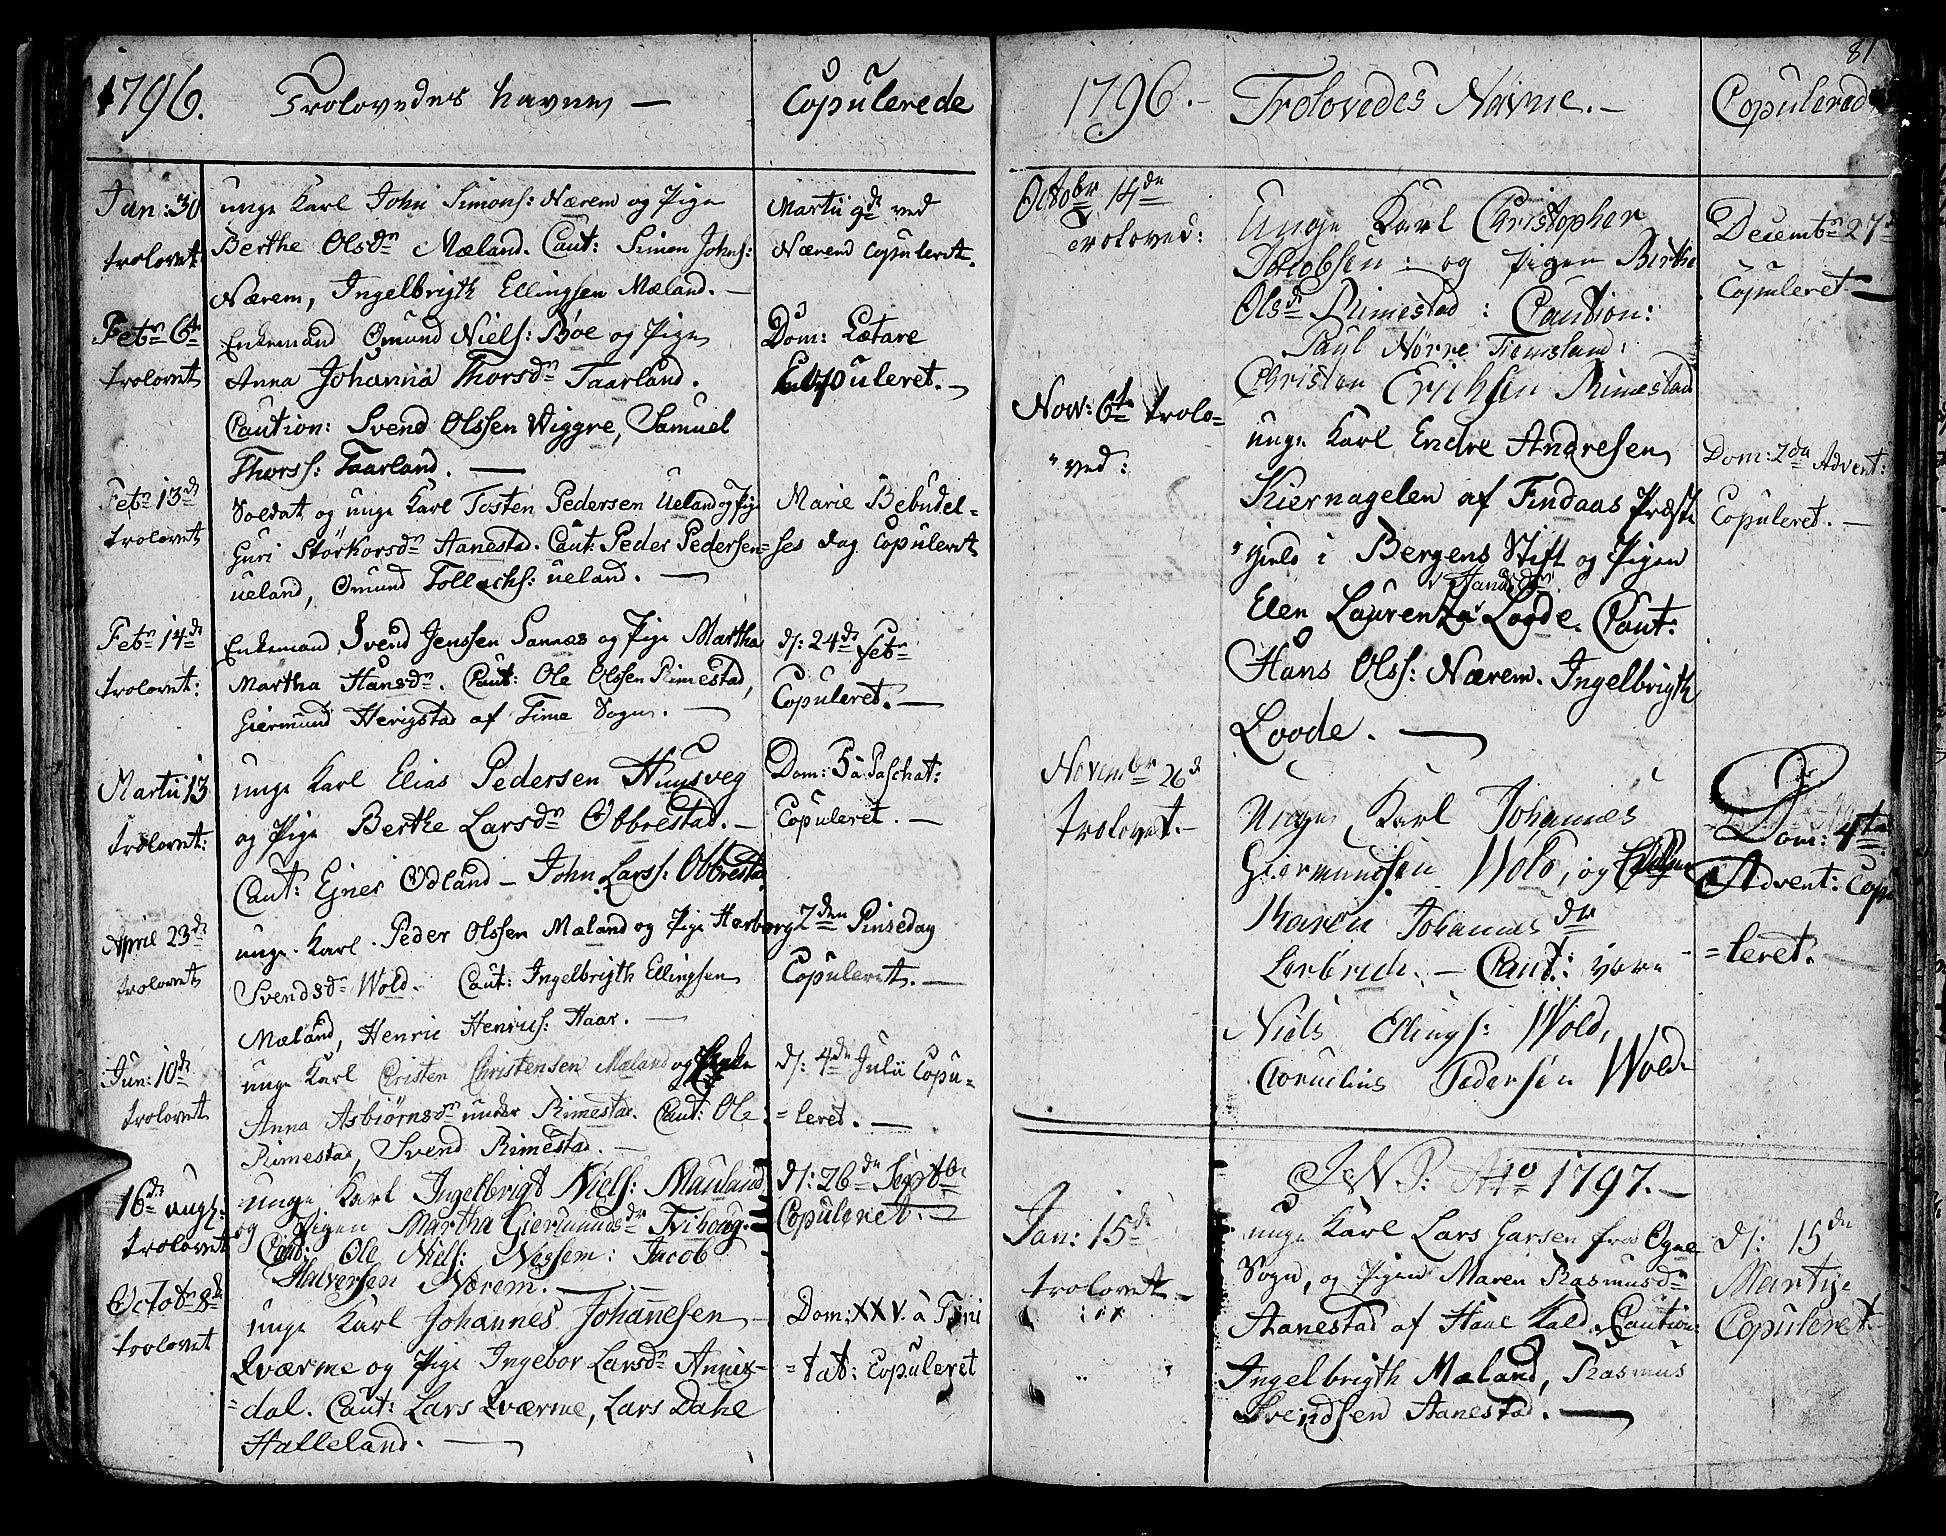 1796. Trolovedes Navne — Copulerede
Jan: 30
trolovet
unge Karl John Simons: Nærem og Pige
Berthe Olsdr Mæland. Caut: Simon Johns:
Nærem, Ingelbrigth Ellingsen Mæland. —
Martii 9de ved
Nærend Copuleret.
Febr 6te
trolovet
Enkemand Omund Niels: Bøe og Pige
Anna Johanna Thorsdr Taarland.
Caution: Svend Olssen Wiggre, Samuel
Thorss: Taarland. —
Dom: Lætare
Copuleret. —
Febr 13de
trolovet
Soldat og unge Karl Tosten Pedersen Ueland og Pige
Guri Storkorsdr Aanestad. Caut: Peder Pedersen
Ueland, Omund Tollachs: Ueland. —
Marie Bebudel-
=ses dag Copuleret
Febr 14de
trolovet:
Enkemand Svend Jenssen Sannes og Pige Martha
Martha Hansdr. Caut: Ole Olssen Rimestad,
Giermund Herigstad af Time Sogn. —
d: 24de Febr
Copuleret. —
Martii 13
trolovet:
unge Karl Elias Pedersen Huusveg
og Pige Berthe Larsdr Obbrestad. —
Caut: Ejner Odland — John Larss: Obbrestad.
Dom: 5 à Paschat:
Copuleret. —
April 23de
trolovet
unge Karl Peder Olssen Mæland og Pige Herborg
Svendsdr Wold. Caut: Ingelbrigth Ellingsen
Mæland, Henric Henrics: Haar. —
2den Pinsedag
Copuleret. —
Jun: 10de
trolovet
unge Karl Cristen Christensen Mæland og Enke
Anna Asbiørnsdr under Rimestad. Caut: Ole
Rimestad, Svend Rimestad. —
d: 4de Julii Copu-
=leret. —
16de augs:
trolovet
unge Karl Ingelbrigt Niels: Mauland
og Pigen Martha Giermundsdr Tvihoug.
Caut: Ole Niels: Nessem: Jacob
Halversen Nærem. —
d: 26de Septbr
Copuleret. —
Octobr 8de
trolovet
unge Karl Johannes Johanesen
Qværme og Pige Ingebor Larsdr Annix-
=dal. Caut: Lars Qværme, Lars Dahl
Halleland. —
Dom: XXV. à Trini
=tat: Copuleret
81
1796. — Trolovedes Navne. — Copulered
Octobr 14de
troloved:
Unge Karl Christopher
Jacobsen og Pigen Birthe
Olsdr Rimestad: Caution:
Paul Nørre Tiemsland:
Christen Erichsen Rimestad
Decembr 27de
Copuleret —
Nov: 6te trolo-
"ved:
unge Karl Endre Andresen
Kiernagelen af Findaas Præste
"gield i Bergens Stift og Pigen
Hansdr
Elen Laurenza Lode. Caut:
Hans Olss: Nærem. Ingelbrigth
Loode. —
Dom: 2da Advent:
Copuleret. —
Novembr 26de
trolovet. —
Unge Karl Johannes
Giermundsen Wold, og Pigen
Karen Johannesdr
Lerbrek. — Caut: vare
Niels Ellings: Wold,
Cornelius Pedersen Wold
Dom: 4ta
Advent: Copu
=leret. —
J. N. J: Ao 1797. —
Jan: 15de
trolovet —
unge Karl Lars Garsen fra Ogne
Sogn, og Pigen Maren Rasmusdr
Aanestad af Haae Kald. Caution:
Ingelbrigth Mæland, Rasmus
Svendsen Aanestad. —
d: 15de
Martje
Copuleret.